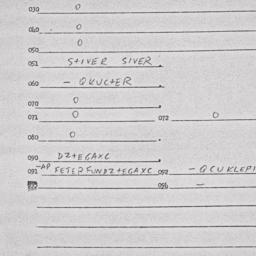 030 0
040 0
050 0
051 STIVER SIVER.
060 - QKUCTER.
070 0
071 0 072 0
080 0
090 DZTEGAXC
091 -AP FETERFUNDZTEGAXC 052 -QCUKLEPI
056 -